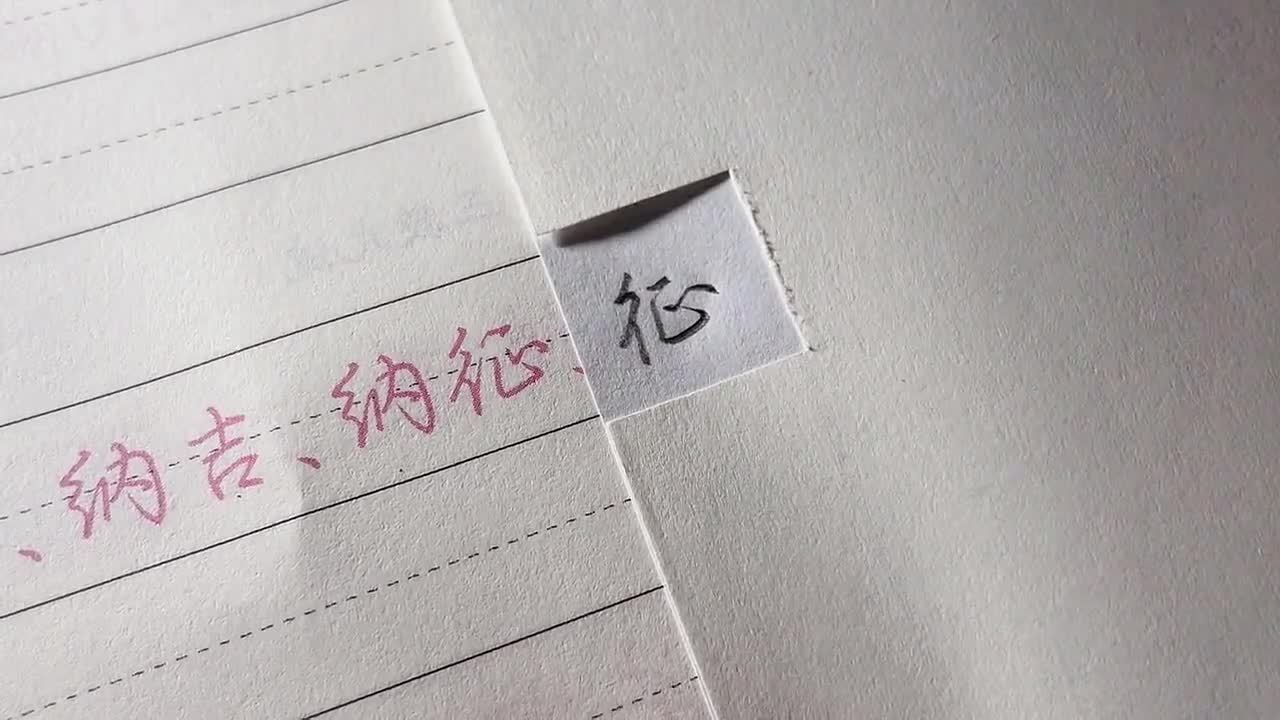 、纳吉、纳征、
征